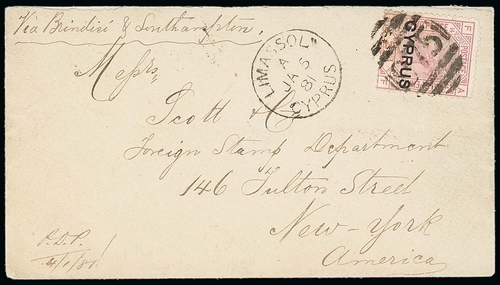 Via Brindisi & Southampton,
LIMASSOL
A
JA 5
81
CYPRUS
CYPRUS
Messrs
Scott & Co
Foreign Stamp Department
146 Fulton Street
New-York
America
4/1/81